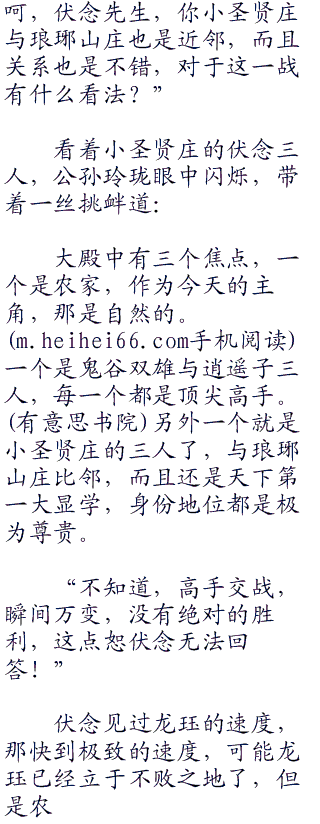 呵，伏念先生，你小圣贤庄
与琅琊山庄也是近邻，而且
关系也是不错，对于这一战
有什么看法？”
看着小圣贤庄的伏念三
人，公孙玲珑眼中闪烁，带
着一丝挑衅道：
大殿中有三个焦点，一
个是农家，作为今天的主
角，那是自然的。
(m.heihei66.com手机阅读)
一个是鬼谷双雄与逍遥子三
人，每一个都是顶尖高手。
(有意思书院)另外一个就是
小圣贤庄的三人了，与琅琊
山庄比邻，而且还是天下第
一大显学，身份地位都是极
为尊贵。
“不知道，高手交战，
瞬间万变，没有绝对的胜
利，这点恕伏念无法回
答！”
伏念见过龙珏的速度，
那快到极致的速度，可能龙
珏已经立于不败之地了，但
是农